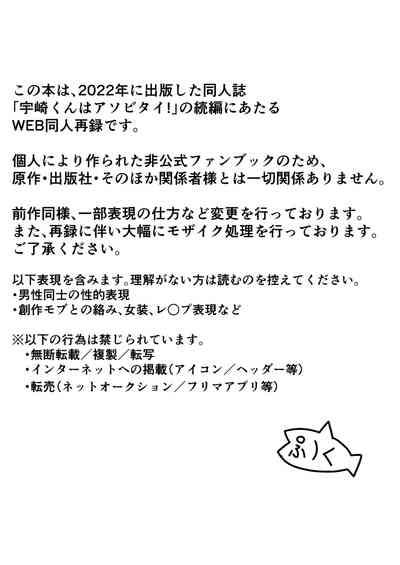 この本は、2022年に出版した同人誌
「宇崎くんはアソビタイ!」の続編にあたる
WEB同人再録です。
個人により作られた非公式ファンブックのため、
原作・出版社・そのほか関係者様とは一切関係ありません。
前作同様、一部表現の仕方など変更を行っております。
また、再録に伴い大幅にモザイク処理を行っております。
ご了承ください。
以下表現を含みます。理解がない方は読むのを控えてください。
・男性同士の性的表現
・創作モブとの絡み、女装、レ〇プ表現など
※以下の行為は禁じられています。
・無断転載／複製／転写
・インターネットへの掲載（アイコン／ヘッダー等）
・転売（ネットオークション／フリマアプリ等）
ぷりく